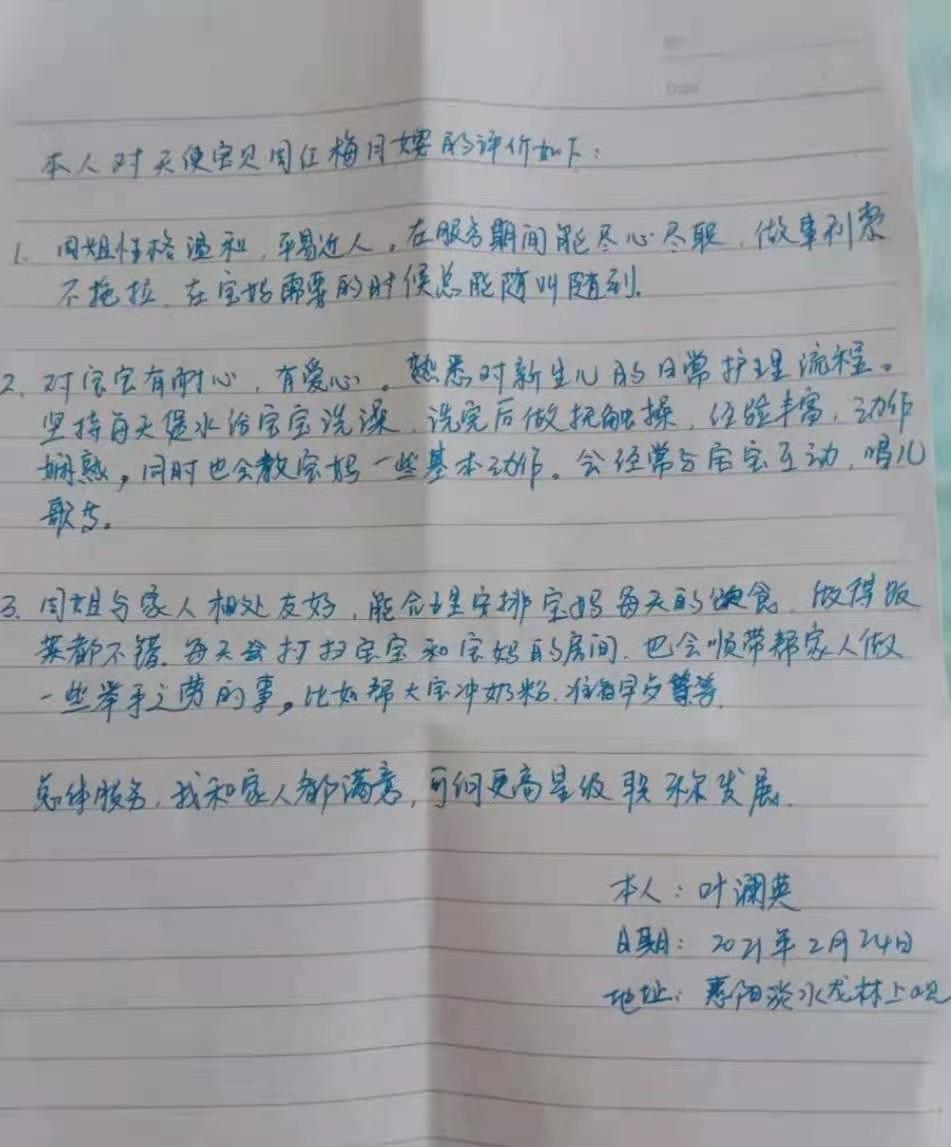 本人对天使宝贝周红梅月嫂的评价如下:
1. 周姐性格温和,平易近人。在服务期间能尽心尽职,做事利索
不拖拉,在宝妈需要的时候总能随叫随到。
2. 对宝宝有耐心,有爱心。熟悉对新生儿的日常护理流程。
坚持每天煲水给宝宝洗澡,洗完后做抚触操,经验丰富,动作
娴熟,同时也会教宝妈一些基本动作。会经常与宝宝互动,唱儿
歌等。
3. 周姐与家人相处友好,能合理安排宝妈每天的饮食,做得饭
菜都不错。每天会打扫宝宝和宝妈的房间,也会顺带帮家人做
一些举手之劳的事,比如帮大宝冲奶粉,准备早点等
总体服务,我和家人都满意,可向更高星级职称发展。
本人:叶澜英
日期:2021年2月24日
地址:惠阳淡水龙林上